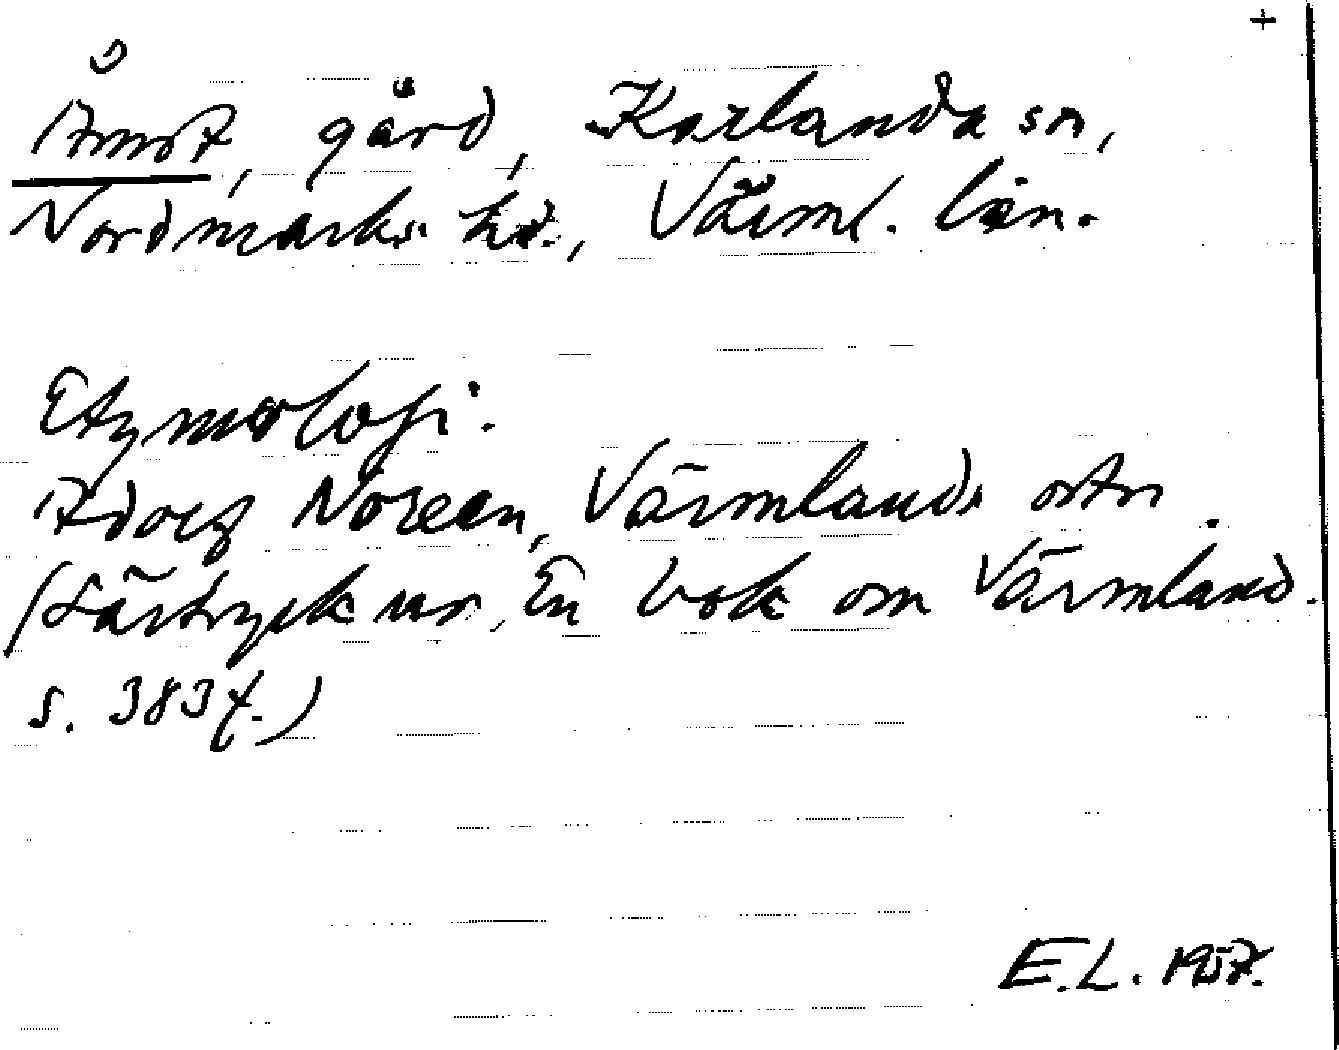 +
Åmot, gård, Karlanda sn,
Nordmarks hd., Värml. län.
Etymologi:
Adolf Noreen, Värmlands ortn.
(Särtryck ur, En bok om Värmland.
s. 383 f.)
E.L. 1957.